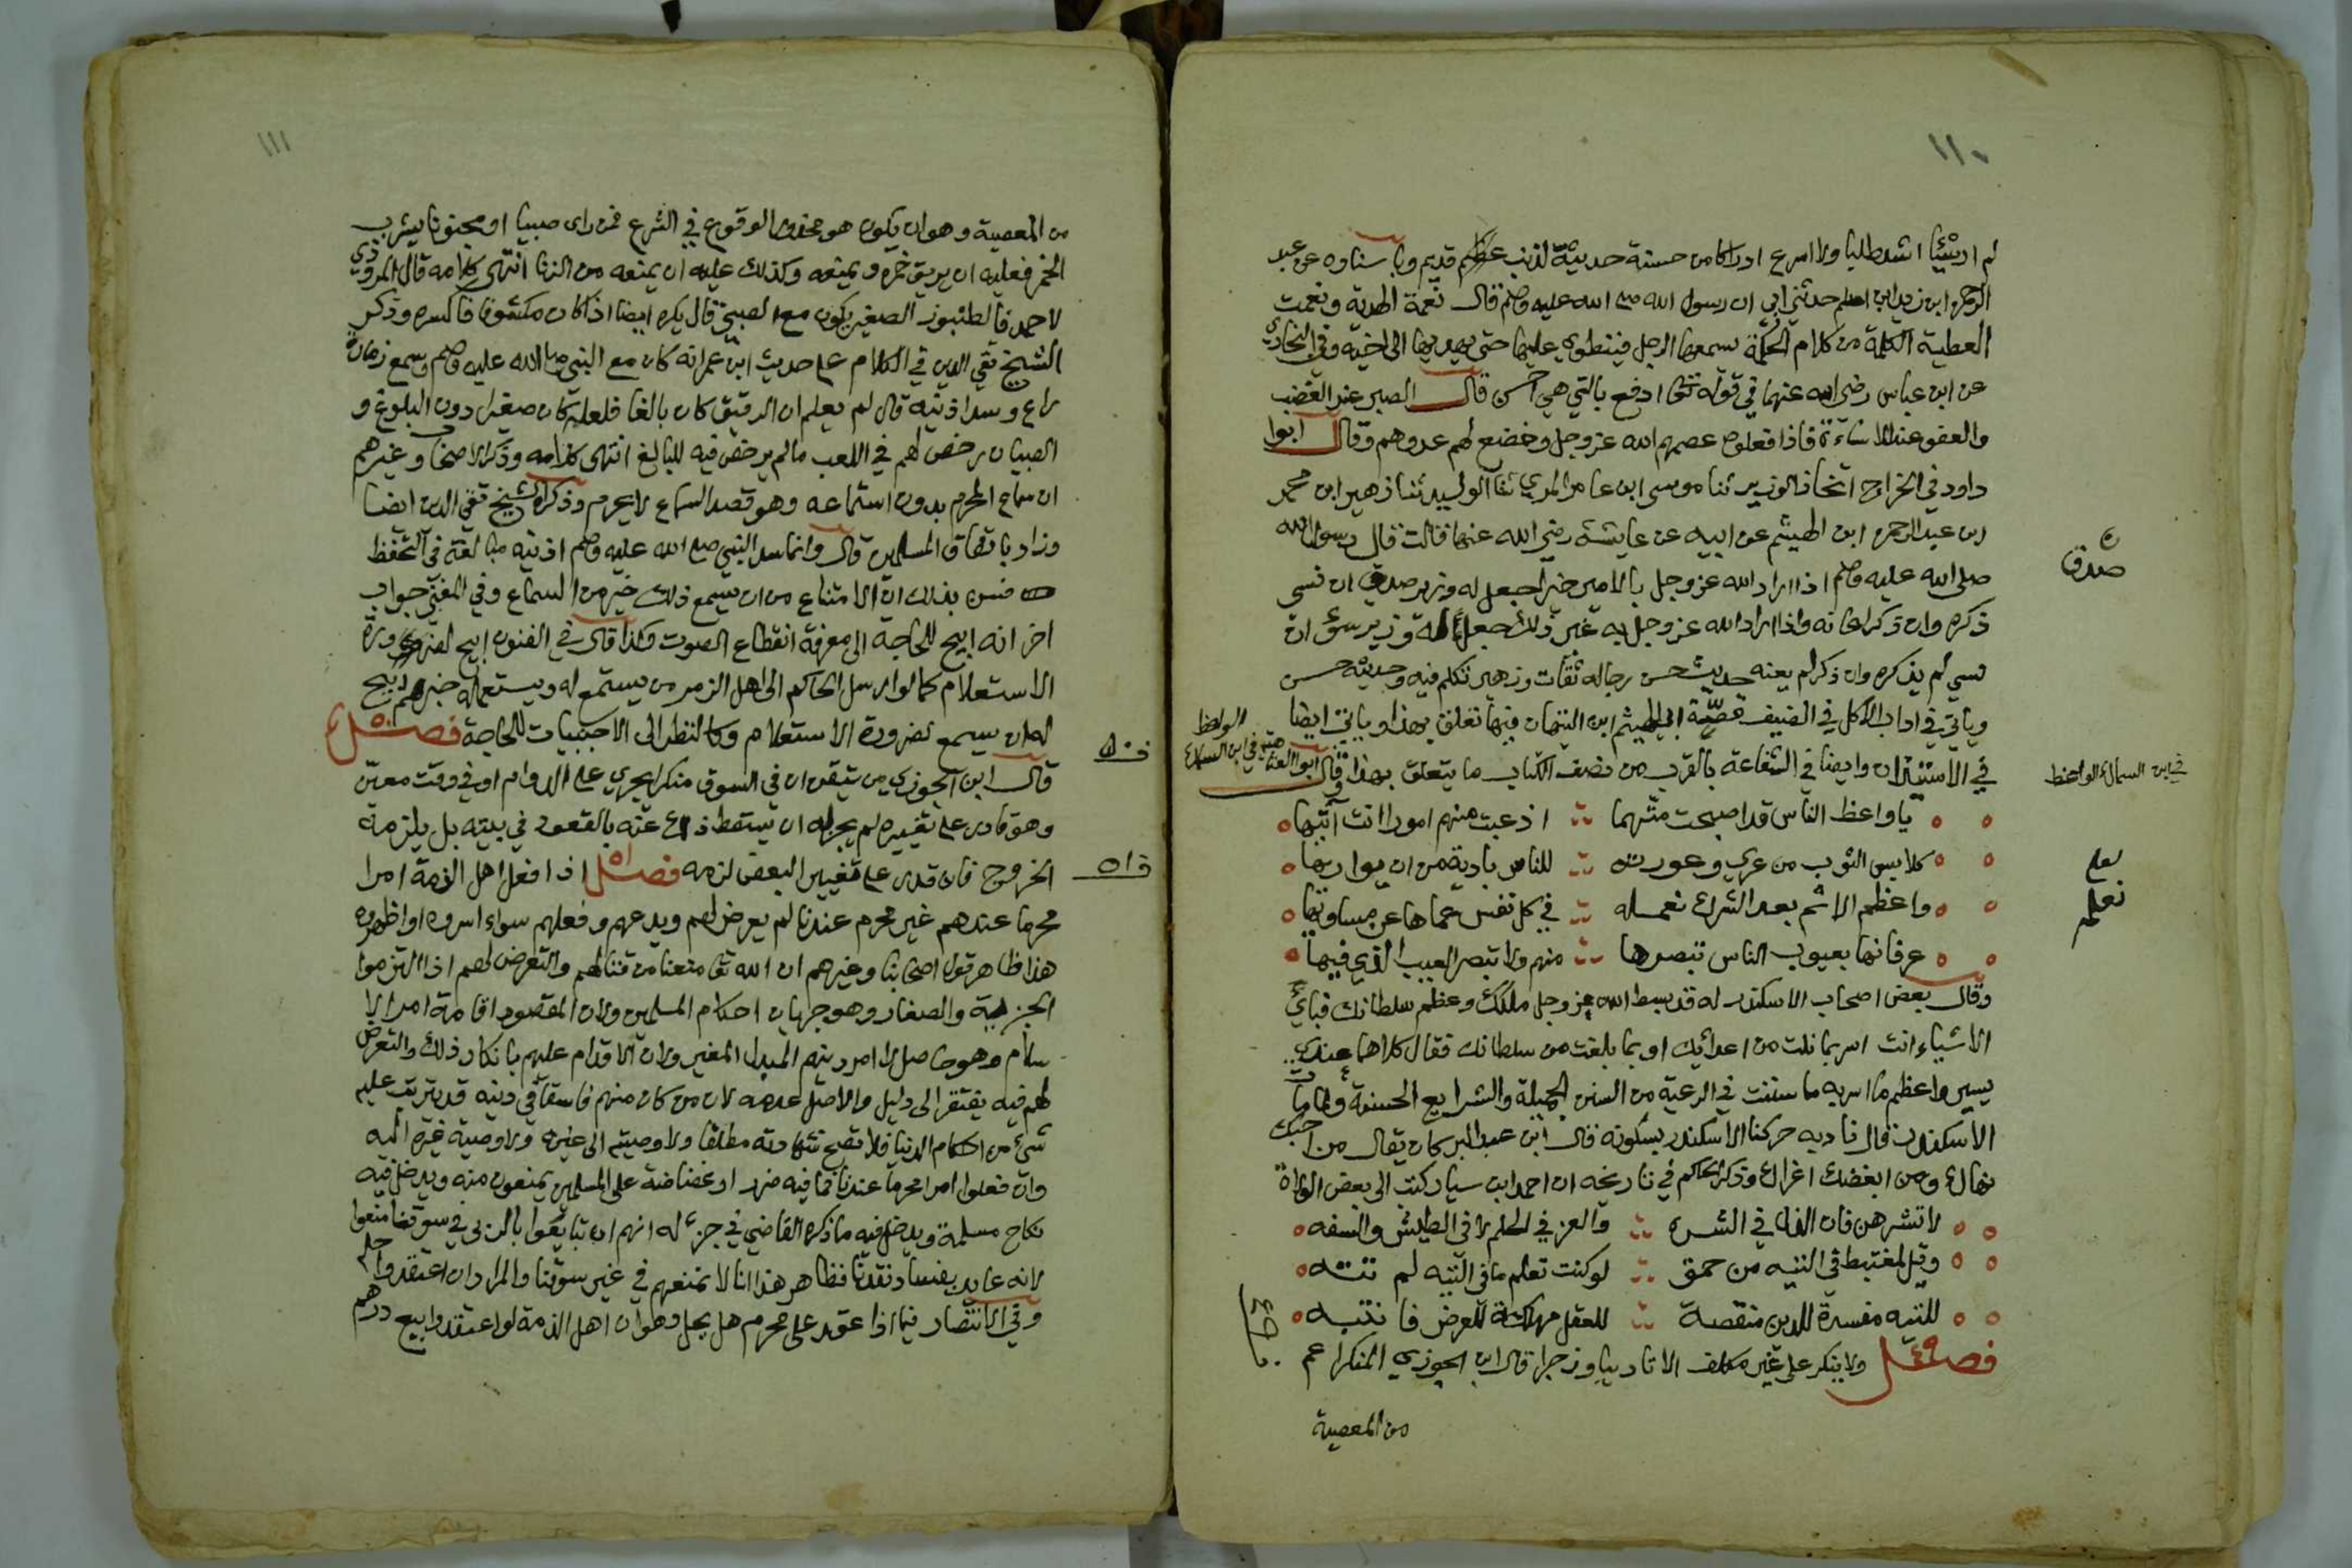 ١١٠
لم ار شيئا اشد طلبا ولا اسرع ادراكا من حسنة حديثة لذنب عظيم قديم وباسناده عن عبد
الرحمن ابن زيد ابن اسلم حدثني ابي ان رسول الله صلى الله عليه وسلم قال نعمة الهدية ونعمت
العطية الكلمة من كلام الحكمة يسمعها الرجل فينطوي عليها حتى يهديها الى اخيه وفي البخاري
عن ابن عباس رضي الله عنهما في قوله تعالى ادفع بالتي هي احسن قال الصبر عند الغضب
والعفو عند الاساءة فاذا فعلوه عصمهم الله عز وجل وخضع لهم عدوهم وقال ابوا
داود في الخراج اتخاذ الوزير ثنا موسى ابن عامر المري ثنا الوليد ثنا زهير ابن محمد
ابن عبد الرحمن ابن الهيثم عن ابيه عن عايشة رضي الله عنها قالت قال رسول الله
صلى الله عليه وسلم اذا اراد الله عز وجل بالامير خيرا جعل له وزير صدق ان نسي
صدق
ذكره وان ذكر اعانه واذا اراد الله عز وجل به غير ذلك جعل له وزير سوء ان
نسي لم يذكره وان ذكر لم يعنه حديث حسن رجاله ثقات وزهير تكلم فيه وحديثه حسن
وياتي في اداب الاكل في الضيف قصة ابي الهيثم ابن التيهان فيها تعلق بهذا وياتي ايضا
في الاستئذان وايضا في الشفاعة بالقرب من نصف الكتاب ما يتعلق بهذا وقال ابوا العتاهية في ابن السماك الواعظ
في ابن السماك الواعظ
يا واعظ الناس قد اصبحت متهما اذ عبت منهم امورا انت آتيها
كلابس الثوب من عري وعورته للناس بادية من ان يواريها
واعظم الاثم بعد الشرك نعمله في كل نفس عماها عن مساويها
نعلمه
عرفانها بعيوب الناس تبصرها منهم ولا تبصر العيب الذي فيها
وقال بعض اصحاب الاسكندر له قد بسط الله عز وجل ملكك وعظم سلطانك فباي
الاشياء انت اسر بما نلت من اعدائك او بما بلغت من سلطانك فقال كلاهما عندي
يسير واعظم ما اسر به ما سننت في الرعية من السنن الجميلة والشرايع الحسنة ولما مات
الاسكندر قال نادبه حركنا الاسكندر بسكونه قال ابن عبد البر كان يقال من احبك
نهاك ومن ابغضك اغراك وذكر الحاكم في تاريخه ان احمد ابن سيار كتب الى بعض الولاة
لا تشرهن فان الذل في الشره والعز في الحلم لا في الطيش والسفه
وقل لمغتبط في التيه من حمق لو كنت تعلم ما في التيه لم تته
للتيه مفسدة للدين منقصة للعقل مهلكة للعرض فانتبه
فصل ٤٩ ولا ينكر على غير مكلف الا تاديبا وزجرا قال ابن الجوزي المنكر اعم
من المعصية
١١١
من المعصية وهو ان يكون هو محذور الوقوع في الشرع فمن راى صبيا او مجنونا يشرب
الخمر فعليه ان يريق خمره ويمنعه وكذلك عليه ان يمنعه من الزنا انتهى كلامه قال المروذي
لاحمد فالطنبور الصغير يكون مع الصبي قال يكره ايضا اذا كان مكشوفا فاكسره وذكر
الشيخ تقي الدين في الكلام على حديث ابن عمر انه كان مع النبي صلى الله عليه وسلم وسمع زمارة
راع وسد اذنيه قال لم يعلم ان الرقيق كان بالغا فلعله كان صغيرا دون البلوغ و
الصبيان رخص لهم في اللعب ما لم يرخص فيه للبالغ انتهى كلامه وذكر الاصحاب وغيرهم
ان سماع المحرم بدون استماعه وهو قصد السماع لا يحرم وذكر الشيخ تقي الدين ايضا
وزاد باتفاق المسلمين قال وانما سد النبي صلى الله عليه وسلم اذنيه مبالغة في التحفظ
فسن بذلك ان الامتناع من ان يسمع ذلك خير من السماع وفي المغني جواب
اخر انه ابيح للحاجة الى معرفة انقطاع الصوت وكذا قال في الفنون ابيح لضرورة
الاستعلام كما لو ارسل الحاكم الى اهل الزمر من يستمع له ويستعمله خبرهم ابيح
له ان يسمع لضرورة الاستعلام وكالنظر الى الاجنبيات للحاجة فصل ٥٠
ف ٥٠
قال ابن الجوزي من تيقن ان في السوق منكرا يجري على الدوام او في وقت معين
وهو قادر على تغييره لم يجز له ان يسقط ذلك عنه بالقعود في بيته بل يلزمه
الخروج فان قدر على تغيير البعض لزمه فصل ٥١ اذا فعل اهل الذمة امرا
ف ٥١
محرما عندهم غير محرم عندنا لم يعرض لهم ويدعهم وفعلهم سواء اسروه او اظهروه
هذا ظاهر قول اصحابنا وغيرهم ان الله تعالى منعنا من قتالهم والتعرض لهم اذا التزموا
الجزية والصغار وهو جريان احكام المسلمين ولان المقصود اقامة امر الا
سلام وهو حاصل لا امر دينهم المبدل المغير ولان الاقدام عليهم بانكار ذلك والتعرض
لهم فيه يفتقر الى دليل والاصل عدمه لان من كان منهم فاسقا في دينه قد يترتب عليه
شيء من احكام الدنيا فلا تصح شهادته مطلقا ولا وصيته الى غيره ولا وصية غيره اليه
وان فعلوا امرا محرما عندنا فما فيه ضرر او غضاضة على المسلمين يمنعون منه ويدخل فيه
نكاح مسلمة ويدخل فيه ما ذكره القاضي في جزء له انهم ان تبايعوا بالربى في سوقنا منعوا
لانه عايد بفساد نقدنا فظاهر هذا انا لا نمنعهم في غير سوقنا والمراد ان اعتقدوا حله
وفي الانتصار فيما اذا عقد على محرم هل يحل وهو ان اهل الذمة لو اعتقدوا بيع درهم